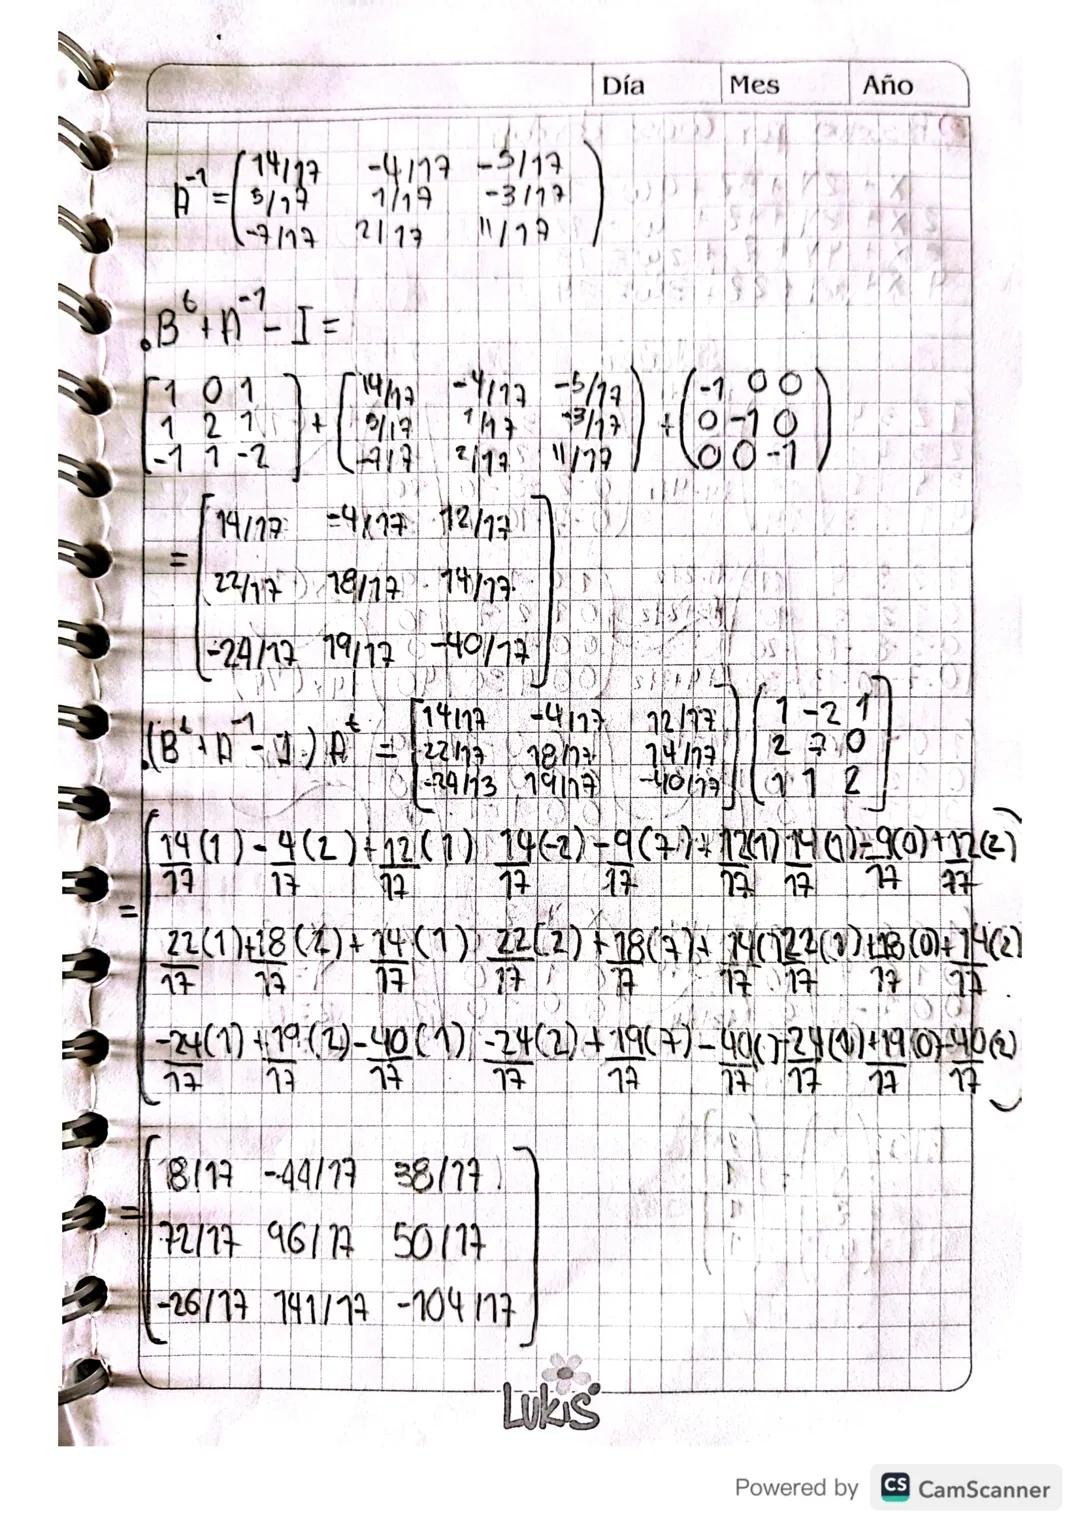 Día Mes Año
A⁻¹ = ( 14/17 -4/17 -5/17
5/17 1/17 -3/17
-7/17 2/17 11/17 )
.Bᵗ + A⁻¹ - I =
[ 1 0 1 ] + [ 14/17 -4/17 -5/17 ) + ( -1 0 0 )
1 2 1 5/17 1/17 -3/17 0 -1 0
-1 1 -2 -7/17 2/17 11/17 0 0 -1
= [ 14/17 -4/17 12/17
22/17 18/17 14/17
-24/17 19/17 -40/17 ]
.(Bᵗ + A⁻¹ - I) Aᵗ = [ 14/17 -4/17 12/17 ] [ 1 -2 1 ]
22/17 18/17 14/17 2 7 0
-24/13 19/17 -40/17 1 1 2
= ( 14/17 (1) - 4/17 (2) + 12/17 (1) 14/17 (-2) - 9/17 (7) + 12/17 (1) 14/17 (1) - 9/17 (0) + 12/17 (2)
22/17 (1) + 18/17 (2) + 14/17 (1) 22/17 (2) + 18/17 (7) + 14/17 ( 22/17 (1) + 18/17 (0) + 14/17 (2)
-24/17 (1) + 19/17 (2) - 40/17 (1) -24/17 (2) + 19/17 (7) - 40/17 ( -24/17 (1) + 19/17 (0) - 40/17 (2) )
= [ 18/17 -44/17 38/17
72/17 96/17 50/17
-26/17 141/17 -104/17 ]
Lukis
Powered by CS CamScanner